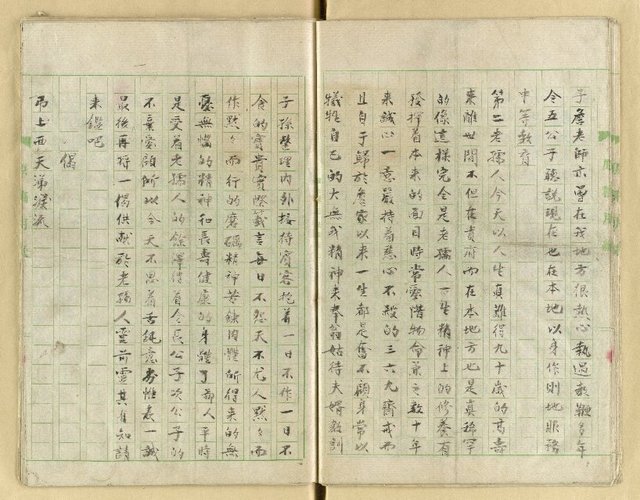 子詹老師亦曾在我地方很熱心執過教鞭多年
令五公子聽說現在也在本地以身作則地服務
中等教育
第二老孺人今天以人生真難得九十歲的高壽
來離世間不但在貴府而在本地方也是真稀罕
的像這樣完全是老孺人一生精神上的修養有
發揮着本來的面目時常愛惜物命兼之數十年
來誠心一意嚴持着慈心不殺的三六九齋戒而
且自于歸於詹家以來一生都是奮不顧身常以
犧牲自己的大無我精神夫奉翁姑待夫婿教訓
子孫整理內外接待賓客抱着一日不作一日不
食的寶貴實際箴言每日不怨天不尤人默々而
作默々而行的磨礪精神苦鍊肉體所得來的無
憂無惱的精神和長壽健康的身體了鄙人平時
是受着老孺人的餘澤待着令長公子次公子的
不棄愛顧所以今天不思着舌純意劣惟表一誠
最後再将一偈供献於老孺人靈前靈其有知請
來鑑吧
偈
弔上西天弟淚流